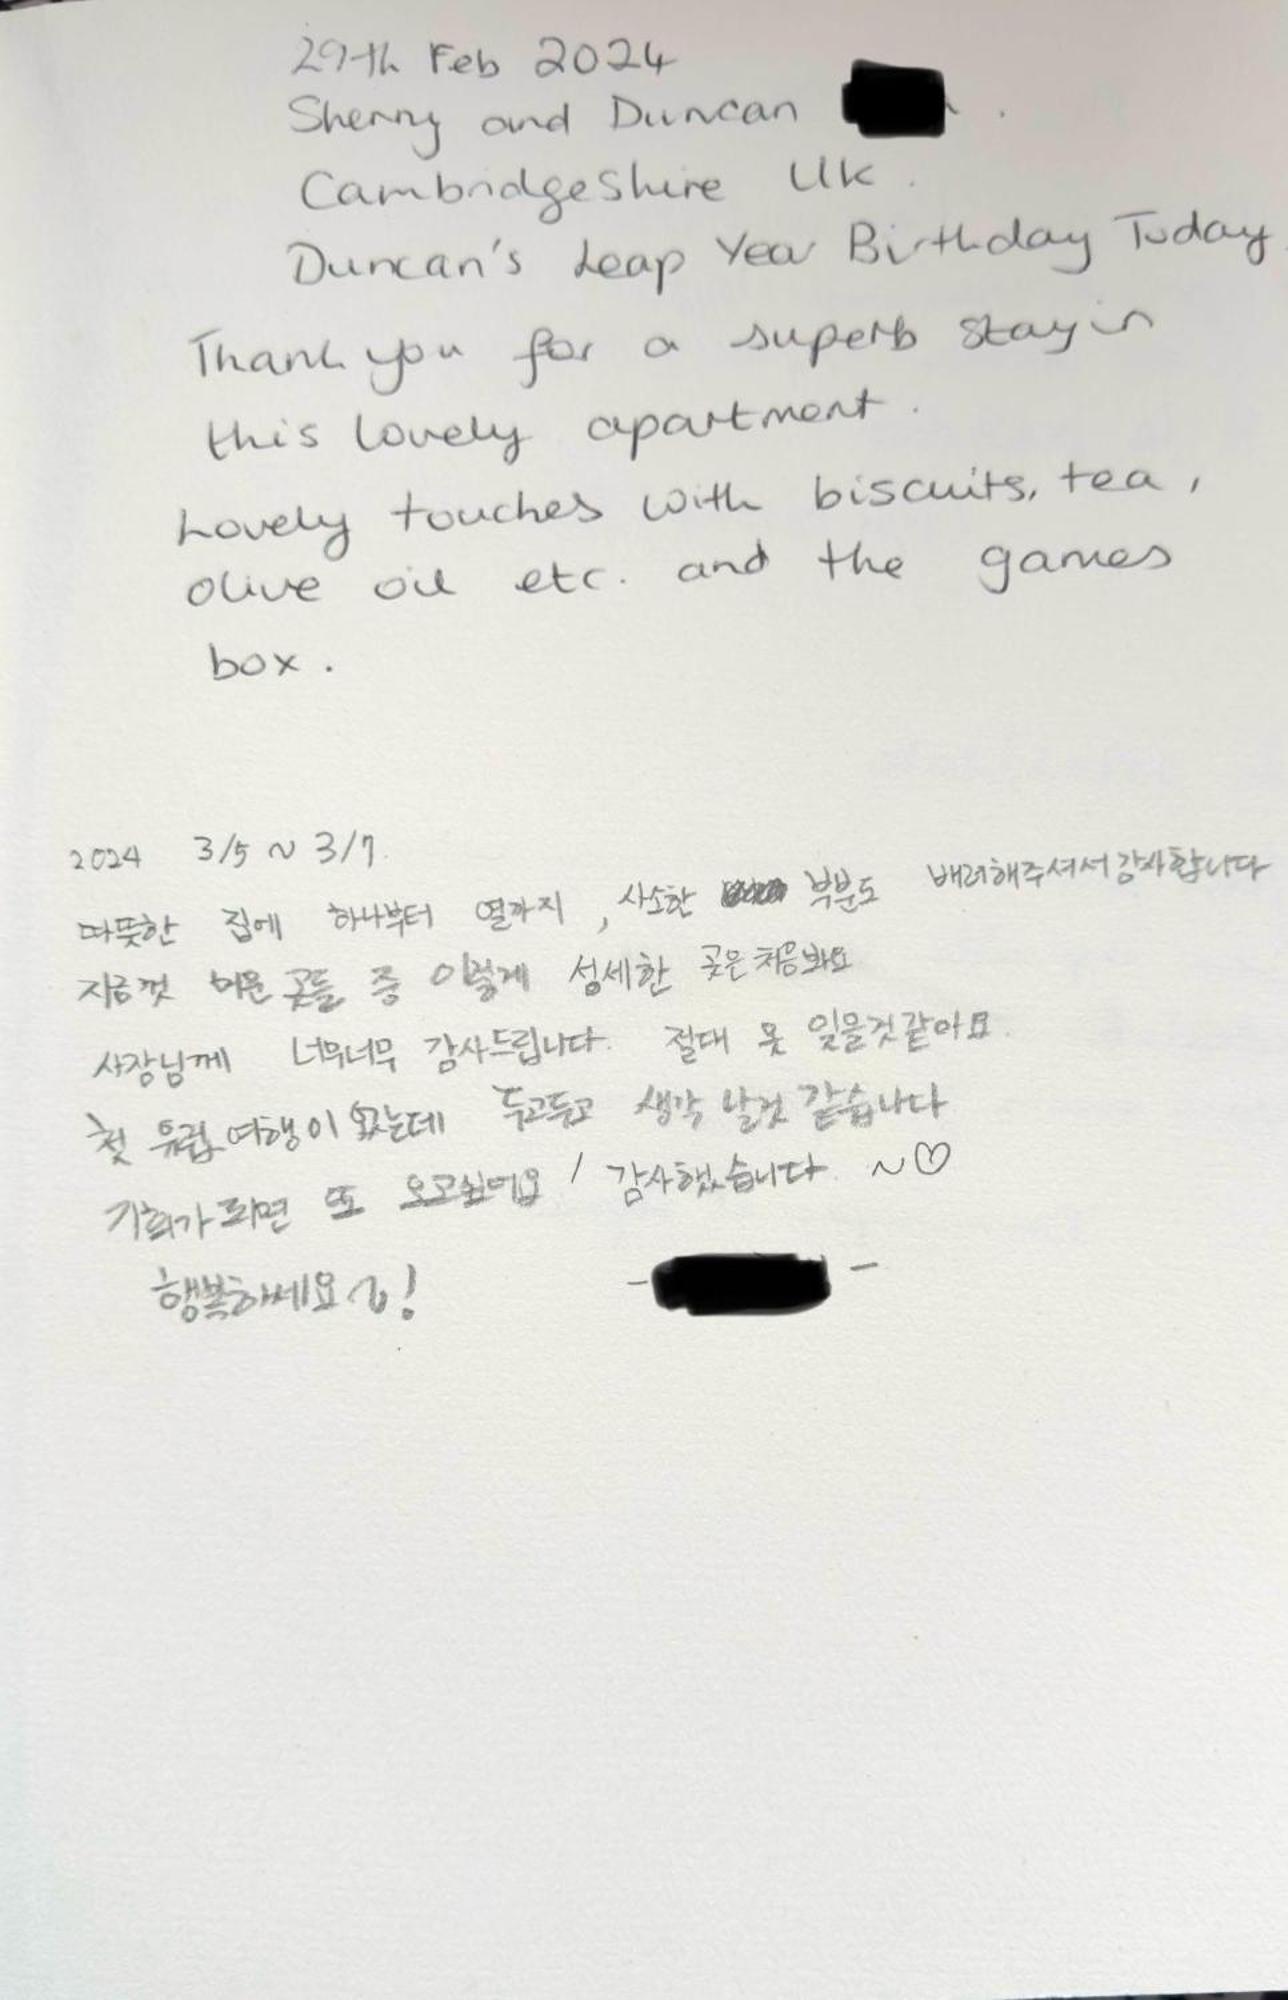 29th Feb 2024
Sherry and Duncan
Cambridgeshire UK.
Duncan's Leap Year Birthday Today
Thank you for a superb stay in
this lovely apartment.
Lovely touches with biscuits, tea,
olive oil etc. and the games
box.
2024 3/5 ~ 3/7.
따뜻한 집에 하나부터 열까지, 사소한 부분도 배려해주셔서 감사합니다
지금껏 머문 곳들 중 이렇게 섬세한 곳은 처음봐요
사장님께 너무너무 감사드립니다. 절대 못 잊을것같아요.
첫 유럽여행이었는데 두고두고 생각 날것 같습니다
기회가 되면 또 오고싶어요! 감사했습니다. ~♡
행복하세요~!